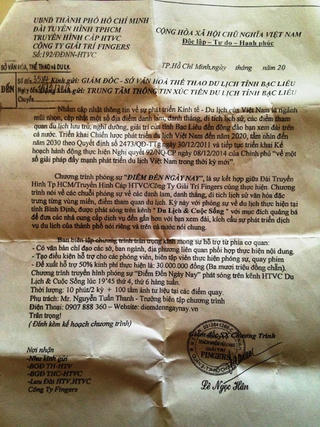 UBND THÀNH PHỐ HỒ CHÍ MINH
ĐÀI TUYỀN HÌNH TPHCM
TRUYỀN HÌNH CÁP HTVC
CÔNG TY GIẢI TRÍ FINGERS
Số:192/ĐDNN-HTVC
CỘNG HÒA XÃ HỘI CHỦ NGHĨA VIỆT NAM
Độc lập - Tự do - Hạnh phúc
TP.Hồ Chí Minh,ngày tháng năm 20
SỞ VĂN HÓA, THỂ THAO & DU LỊCH
ĐẾN
Số
Ngày
Chuyển
Kính gửi: GIÁM ĐỐC - SỞ VĂN HÓA THỂ THAO DU LỊCH TỈNH BẠC LIÊU
Kính gửi: TRUNG TÂM THÔNG TIN XÚC TIẾN DU LỊCH TỈNH BẠC LIÊU
Nhằm cập nhật thông tin về sự phát triển Kinh tế - Du lịch của Việt Nam là ngành
mũi nhọn, cập nhật một số địa điểm danh lam, danh thắng, di tích lịch sử, các điểm tham
quan du lịch lưu trú; nghỉ dưỡng, giải trí của tỉnh Bạc Liêu đến đông đảo bạn xem đài trên
cả nước. Triển khai Chiến lược phát triển du lịch Việt Nam đến năm 2020, tầm nhìn đến
năm 2030 theo Quyết định Số 2473/QĐ-TTg ngày 30/12/2011 và tiếp tục triển khai Kế
hoạch hành động thực hiện Nghị quyết 92/NQ-CP ngày 08/12/2014 của Chính phủ "về một
số giải pháp đẩy mạnh phát triển du lịch Việt Nam trong thời kỳ mới".
Chương trình phóng sự "ĐIỂM ĐẾN NGÀY NAY", là sự kết hợp giữa Đài Truyền
Hình Tp.HCM/Truyền Hình Cáp HTVC/Công Ty Giải Trí Fingers cùng thực hiện. Chương
trình nói về các chuỗi phóng sự về các danh lam, danh thắng, di tích lịch sử văn hóa đặc
trưng từng vùng miền, điểm tham quan du lịch. Kỳ này với phóng sự về du lịch thực hiện tại
tỉnh Bình Định, được phát sóng trên kênh "Du Lịch & Cuộc Sống" với mục đích quảng bá
để đưa các nhà cung cấp dịch vụ đến gần hơn với bạn xem đài, kích cầu sự phát triển dịch
vụ du lịch của thành phố nói riêng và trên cả nước nói chung.
Ban biên tập chương trình trân trọng kính mong sự hỗ trợ từ phía cơ quan:
- Có văn bản chỉ đạo các sở, ban ngành, địa phương liên quan phối hợp thực hiện nội dung.
- Tạo điều kiện hỗ trợ cho các phóng viên, biên tập viên thực hiện phóng sự, quay phim
- Đề xuất hỗ trợ 50% kinh phí thực hiện gói: 30.000.000 đồng (Ba mươi triệu đồng chẵn).
Chương trình truyền hình phóng sự "Điểm Đến Ngày Nay" phát sóng trên kênh HTVC Du
Lịch & Cuộc Sống lúc 19'45 thứ 4, thứ 6 hàng tuần.
Thời lượng: 10 phút/2 kỳ + 100 tấm ảnh tư liệu tại các điểm quay.
Phụ trách: Mr. Nguyễn Tuấn Thanh - Trưởng biên tập chương trình
Điện Thoại: 0907 888 360 – Website: diemdenngaynay.vn
Trân trọng!
( Đính kèm kế hoạch chương trình)
Nơi nhận
-Như kính gửi
-BGĐ TH-HTV
-BGĐ THC-HTVC
-Lưu Đài HTV,HTVC
Công Ty Fingers
Chương Trình
FINGERS
Lê Ngọc Hân